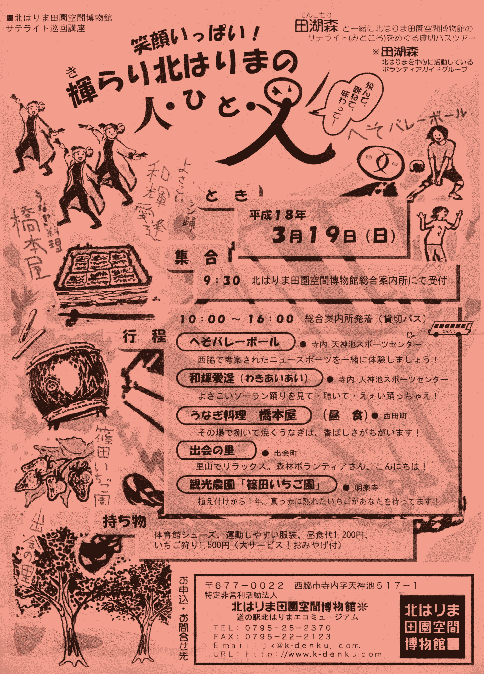 ■北はりま田園空間博物館
サテライト巡回講座
田湖森 と一緒に北はりま田園空間博物館の
サテライト(みどころ)をめぐる貸切バスツアー
※田湖森
北はりまを中心に活動している
ボランティアガイドグループ
笑顔いっぱい!
き
輝らり北はりまの
人・ひと・人
飛んで
跳ねて、
味わって!
へそバレーボール
よさこいソーラン踊り
和輝愛逢
うなぎ料理
橋本屋
とき
平成18年
3月19日(日)
集合
9:30 北はりま田園空間博物館総合案内所にて受付
行程
10:00~16:00 総合案内所発着(貸切バス)
へそバレーボール ●寺内 天神池スポーツセンター
西脇で考案されたニュースポーツを一緒に体験しましょう!
和輝愛逢(わきあいあい) ●寺内 天神池スポーツセンター
よさこいソーラン踊りを見て・聴いて・えぇい踊っちゃえ!
うなぎ料理 橋本屋 (昼食) ●西田町
その場で捌いて焼くうなぎは、香ばしさがちがいます!
出会の里 ●出会町
里山でリラックス。森林ボランティアさん、こんにちは!
観光農園「篠田いちご園」 ●明楽寺
植え付けから1年、真っ赤に熟れたいちごがあなたを待ってます!
篠田いちご園
出会の里
持ち物
体育館シューズ、運動しやすい服装、昼食代1,200円、
いちご狩り1,500円(大サービス!おみやげ付)
お申込・お問合せ先
〒677-0022 西脇市寺内字天神池517-1
特定非営利活動法人
北はりま田園空間博物館※
道の駅北はりまエコミュージアム
TEL:0795-25-2370
FAX:0795-22-2123
URL:http://www.k-denku.com
北はりま
田園空間
博物館■